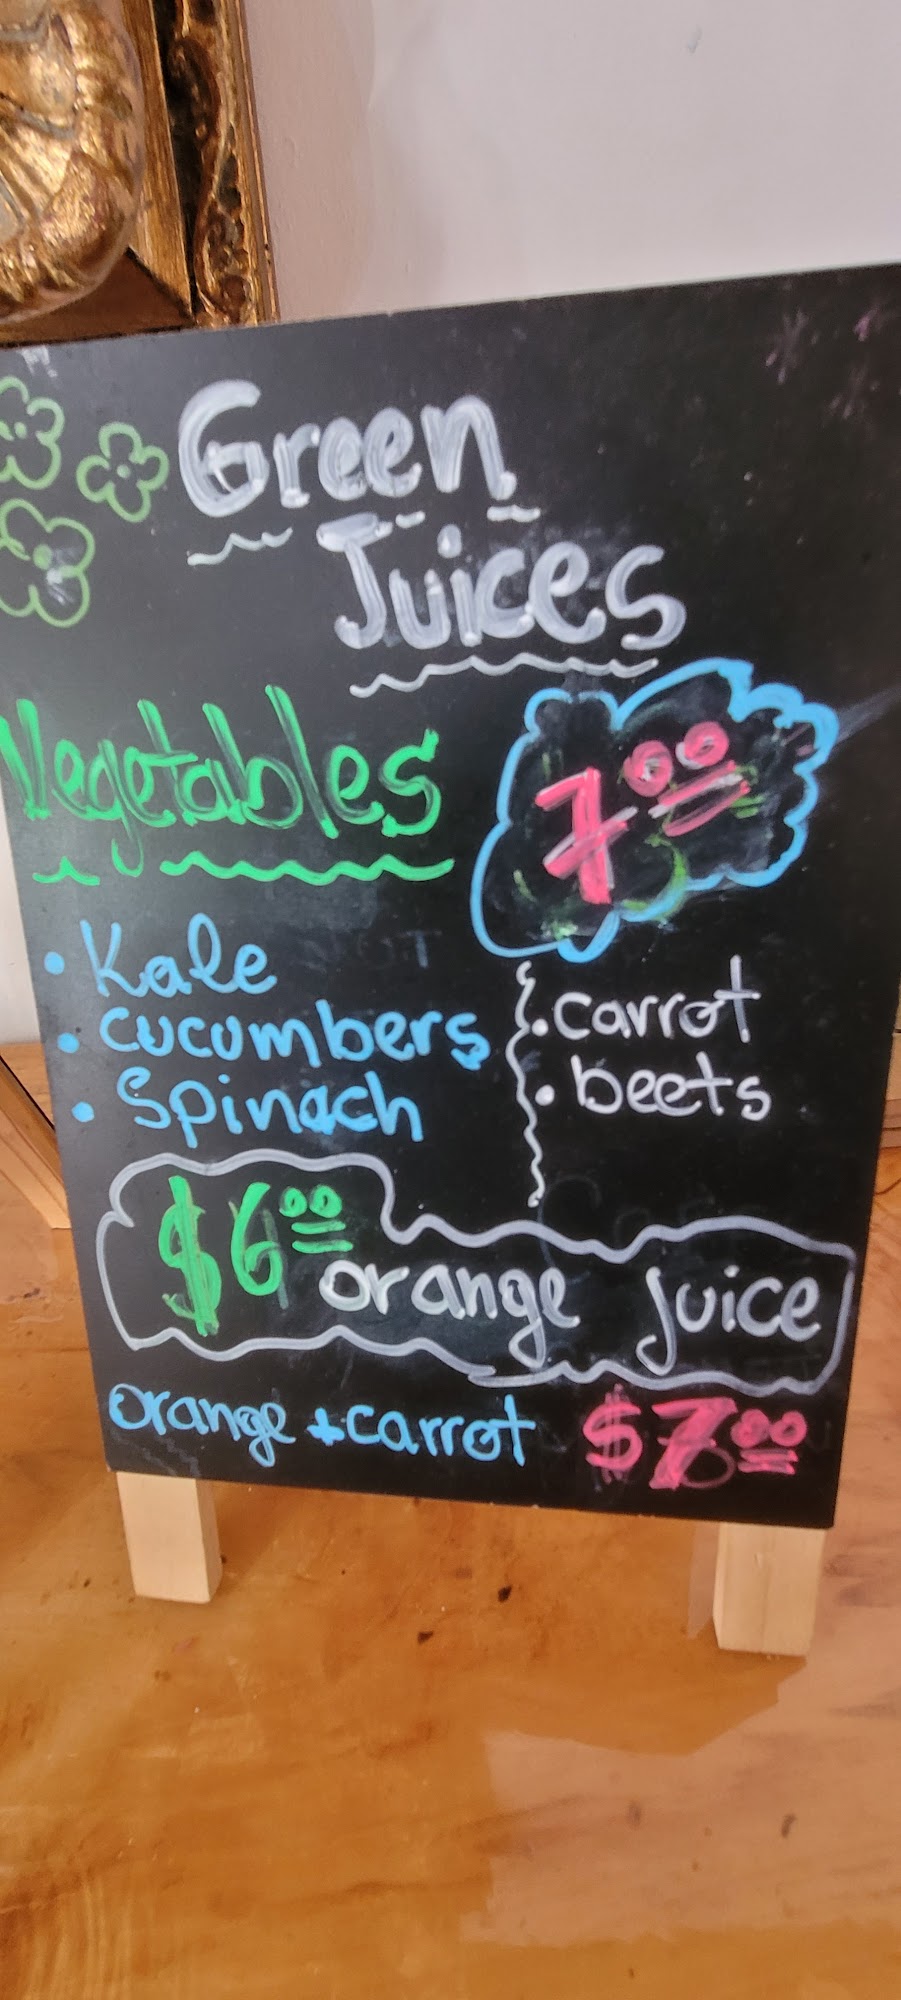 Green
Juices
Vegetables
7.00
• Kale
• cucumbers
• Spinach
• carrot
• beets
$6.00 orange juice
orange + carrot $7.00